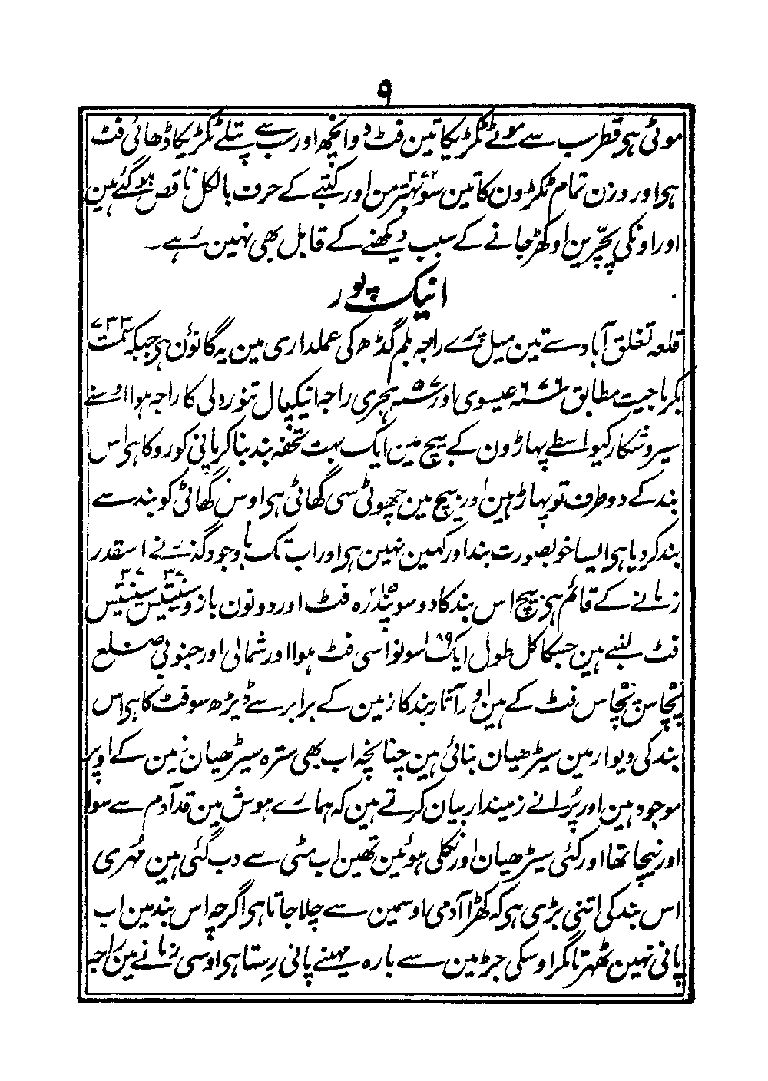 ۹
موٹی ہی قطر سب سے موٹے ٹکڑیکا تین فٹ دو انچھ اور سب سے پتلے ٹکڑیکا ڈھائی فٹ
ہی اور وزن تمام ٹکڑون کا تین سو بہتر من اور کتبے کے حرف بالکل ناقص ہو گئے ہین
اور اونکی پچرین اوکھڑ جانے کے سبب دیکھنے کے قابل بھی نہین رہے ۔
انیک پور
قلعہ تغلق آباد سے تین میل پرے راجہ بلم گڈھ کی عملداری مین یہ گانوئن ہی جبکہ سمت ۷۳۳
بکرماجیت مطابق ۶۷۶ عیسوی اور ۵۷ ہجری راجہ انیکپال تنور دلی کا راجہ ہوا اوسنے
سیر و شکار کیواسطے پہاڑون کے بیچ مین ایک بہت تحفہ بند بنا کر پانی کو روکا ہی اس
بند کے دو طرف تو پہاڑ ہین اور بیچ مین چھوٹی سی گھاٹی ہی اوس گھاٹی کو بند سے
بند کر دیا ہی ایسا خوبصورت بند اور کہین نہین ہی اور اب تک باوجود گذرنے اسقدر
زمانے کے قائم ہی بیچ اس بند کا دو سو پندرہ فٹ اور دونون بازو سینتیس سینتیس
فٹ لنبے ہین جسکا کل طول ایک سو نواسی فٹ ہوا اور شمالی اور جنوبی ضلع
پچاس پچاس فٹ کے ہین اور آثار بند کا زمین کے برابر سے ڈیڑھ سو فٹ کا ہی اس
بند کی دیوار مین سیڑھیان بنائی ہین چنانچہ اب بھی سترہ سیڑھیان زمین کے اوپر
موجود ہین اور پرانے زمیندار بیان کرتے ہین کہ ہمارے ہوش مین قد آدم سے سوا
اور نیچا تھا اور کئی سیڑھیان اور نکلی ہوئین تھین اب مٹی سے دب گئی ہین مہری
اس بند کی اتنی بڑی ہی کہ کھڑا آدمی اوسمین سے چلا جاتا ہی اگرچہ اس بند مین اب
پانی نہین ٹھہرتا مگر اوسکی جڑ مین سے بارہ مہینے پانی رستا ہی اوسی زمانے مین